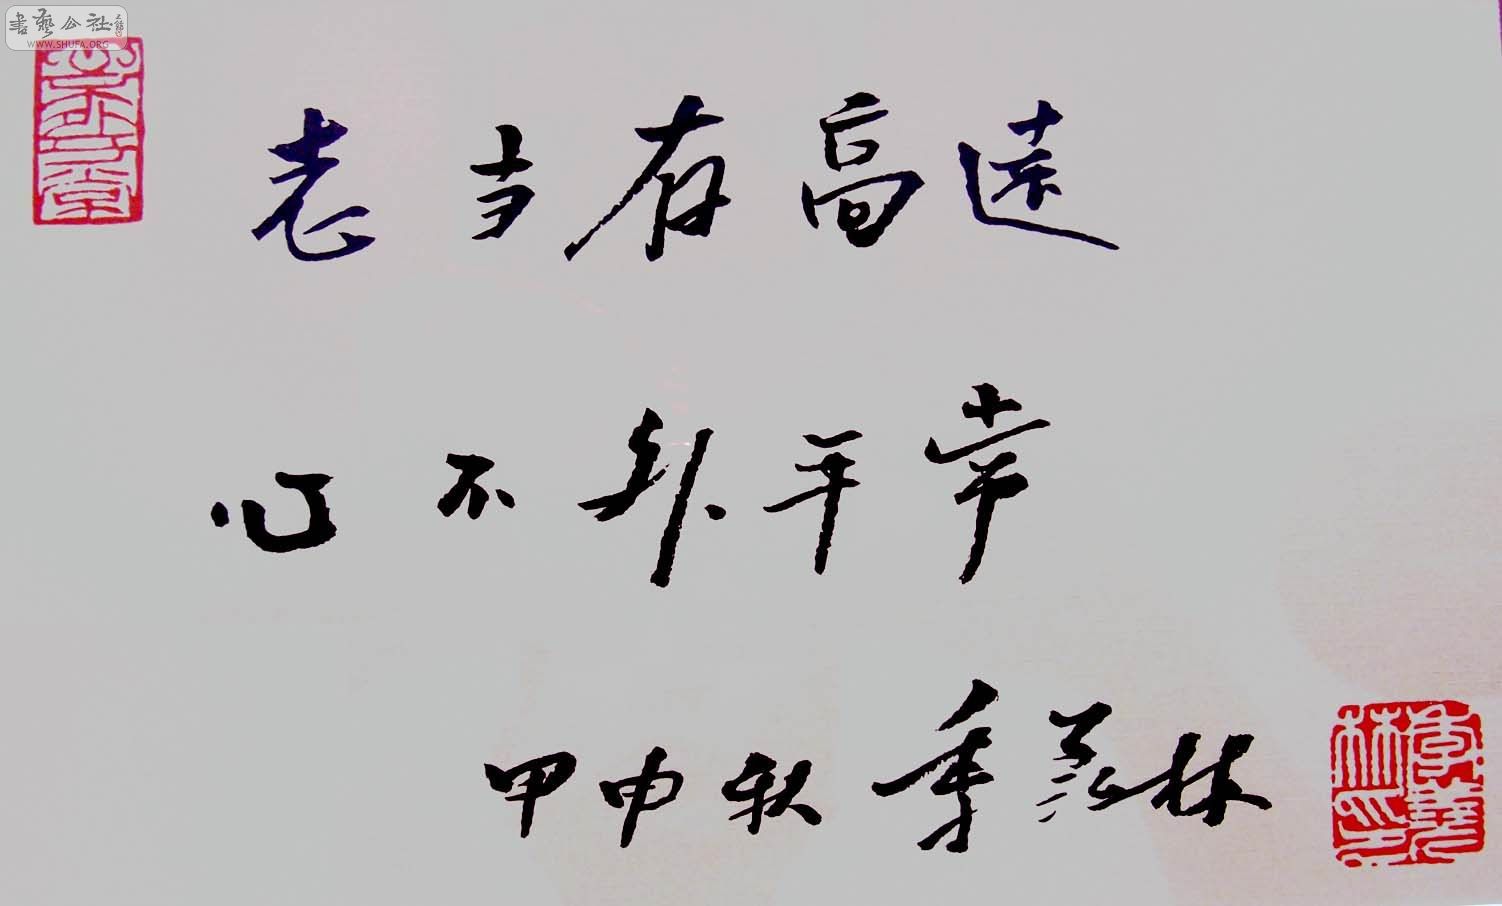 書藝公社
WWW.SHUFA.ORG
志当存高遠
心不外平常
甲申秋 季羡林
季羡林印